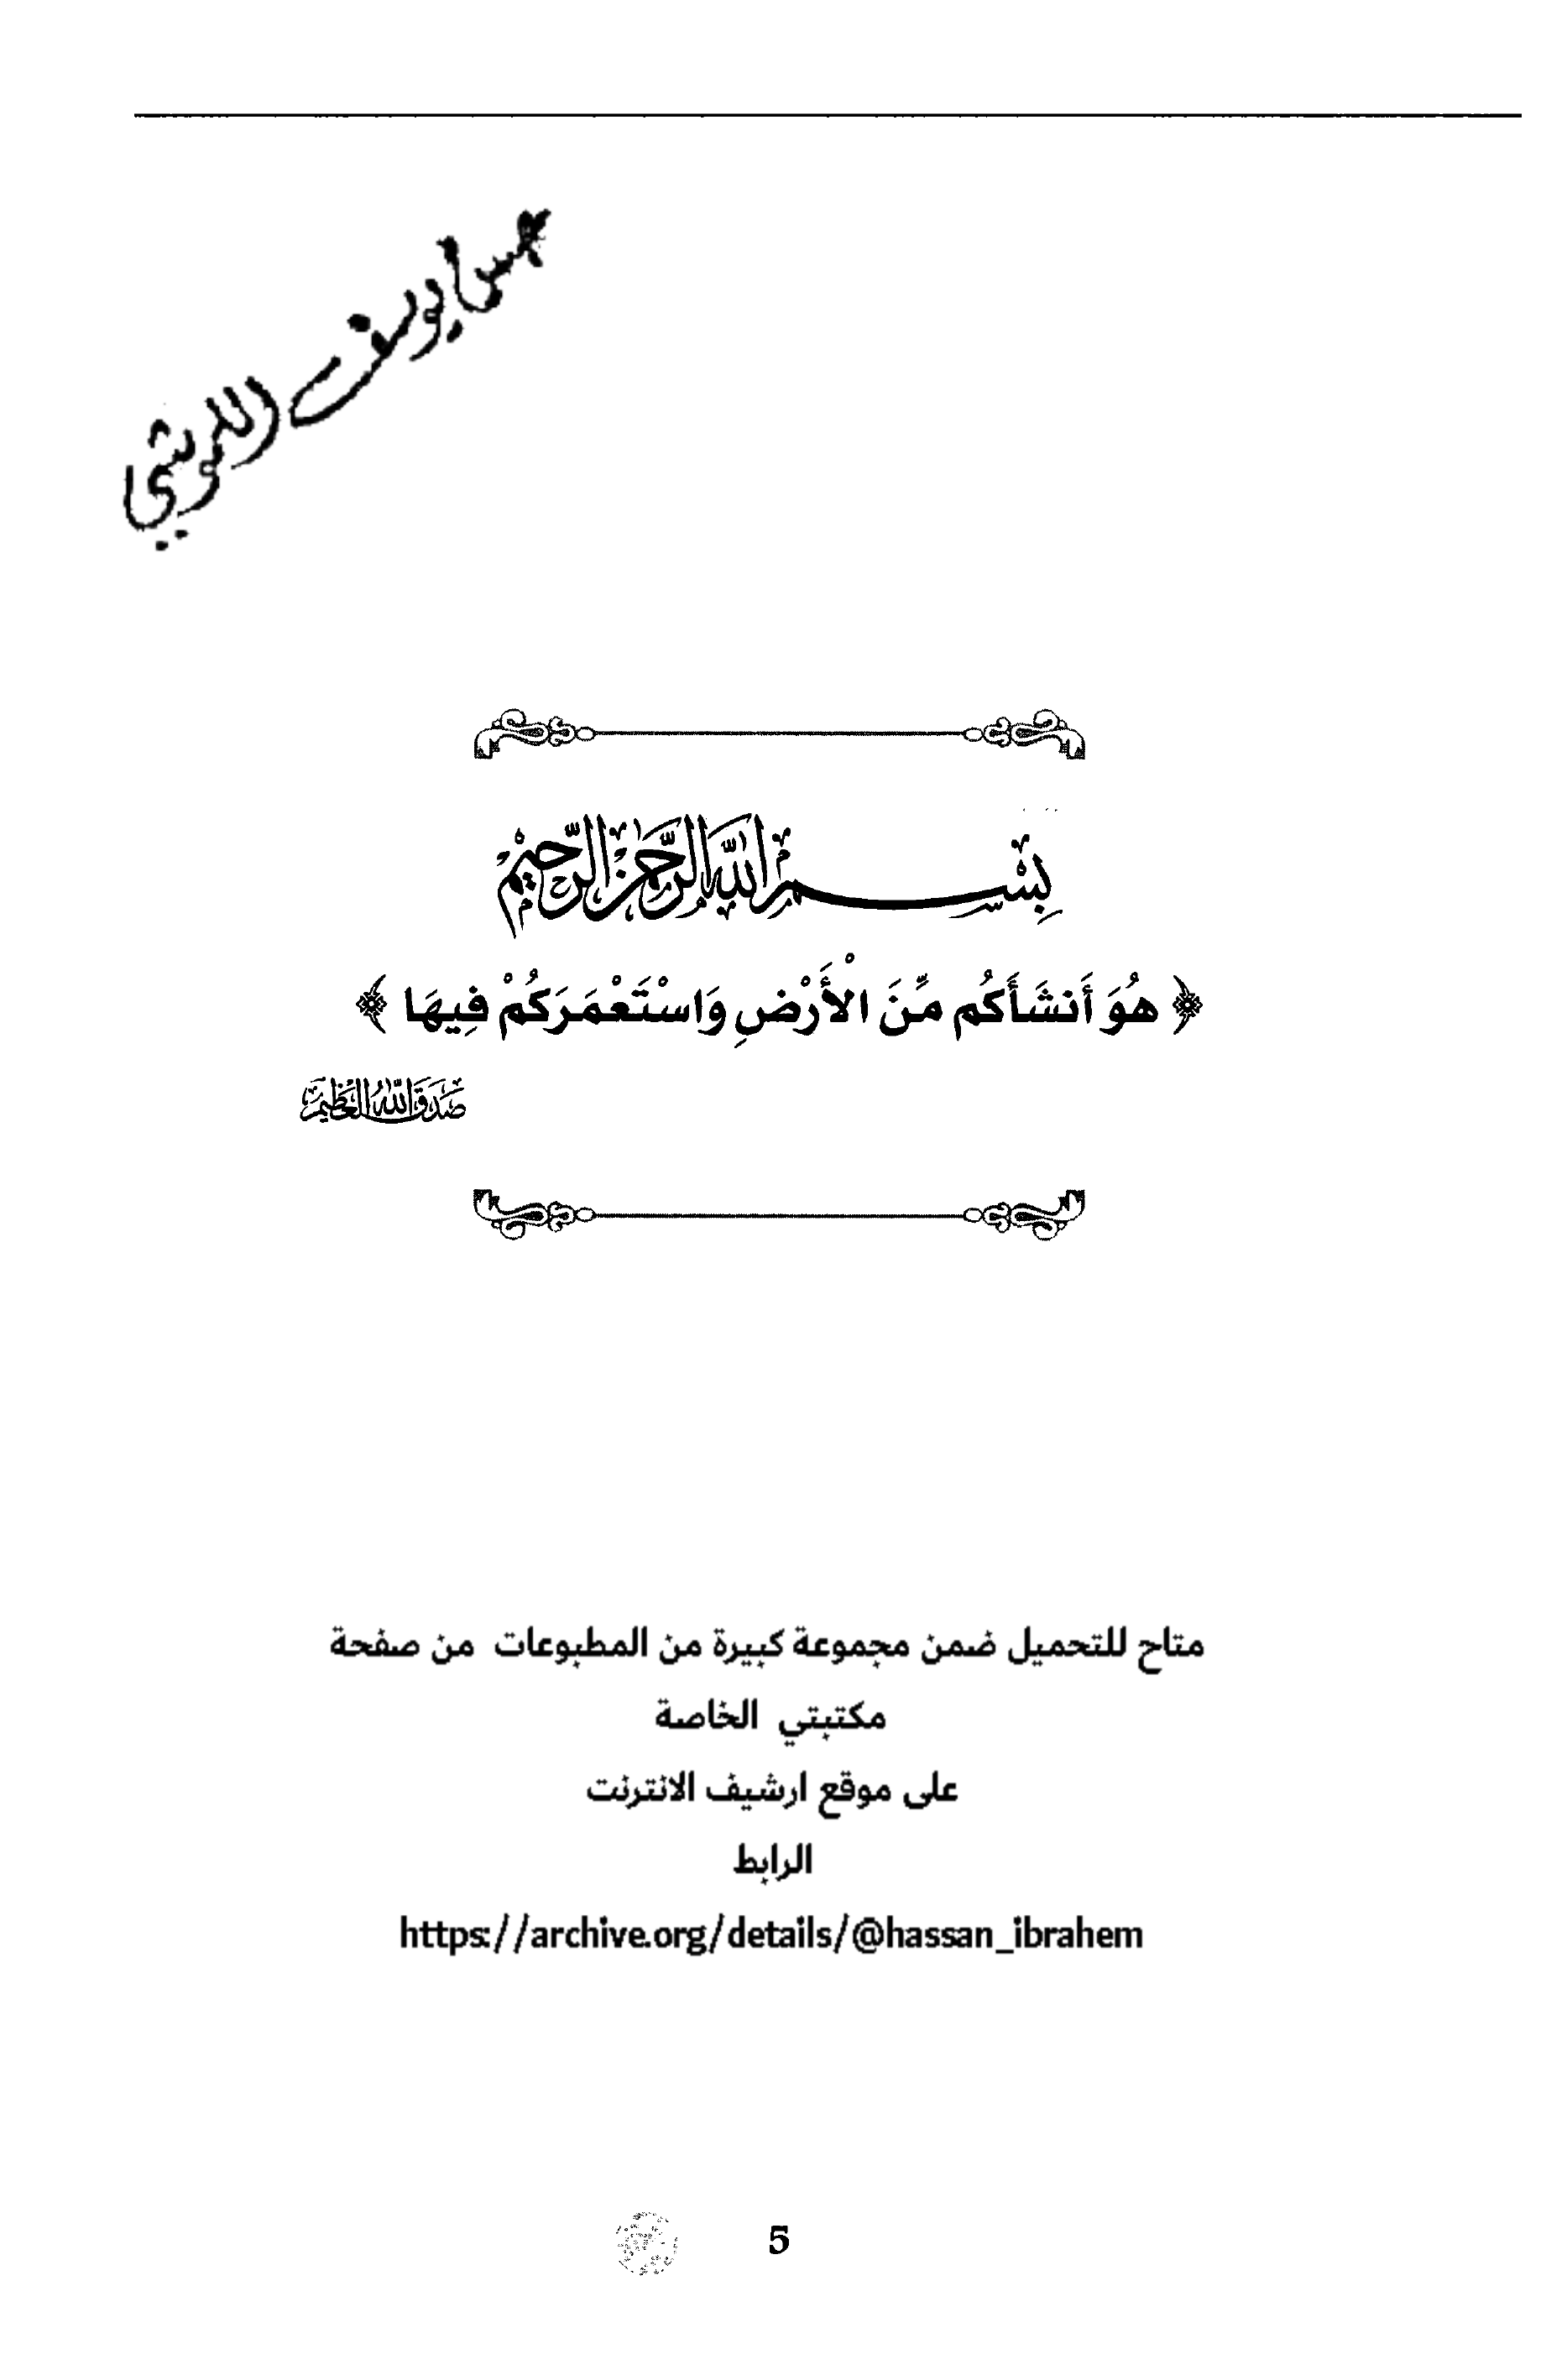 بِسْمِ اللَّهِ الرَّحْمَٰنِ الرَّحِيمِ
﴿ هُوَ أَنشَأَكُم مِّنَ الْأَرْضِ وَاسْتَعْمَرَكُمْ فِيهَا ﴾
صَدَقَ اللَّهُ الْعَظِيمُ
متاح للتحميل ضمن مجموعة كبيرة من المطبوعات من صفحة
مكتبتي الخاصة
على موقع ارشيف الانترنت
الرابط
https://archive.org/details/@hassan_ibrahem
5